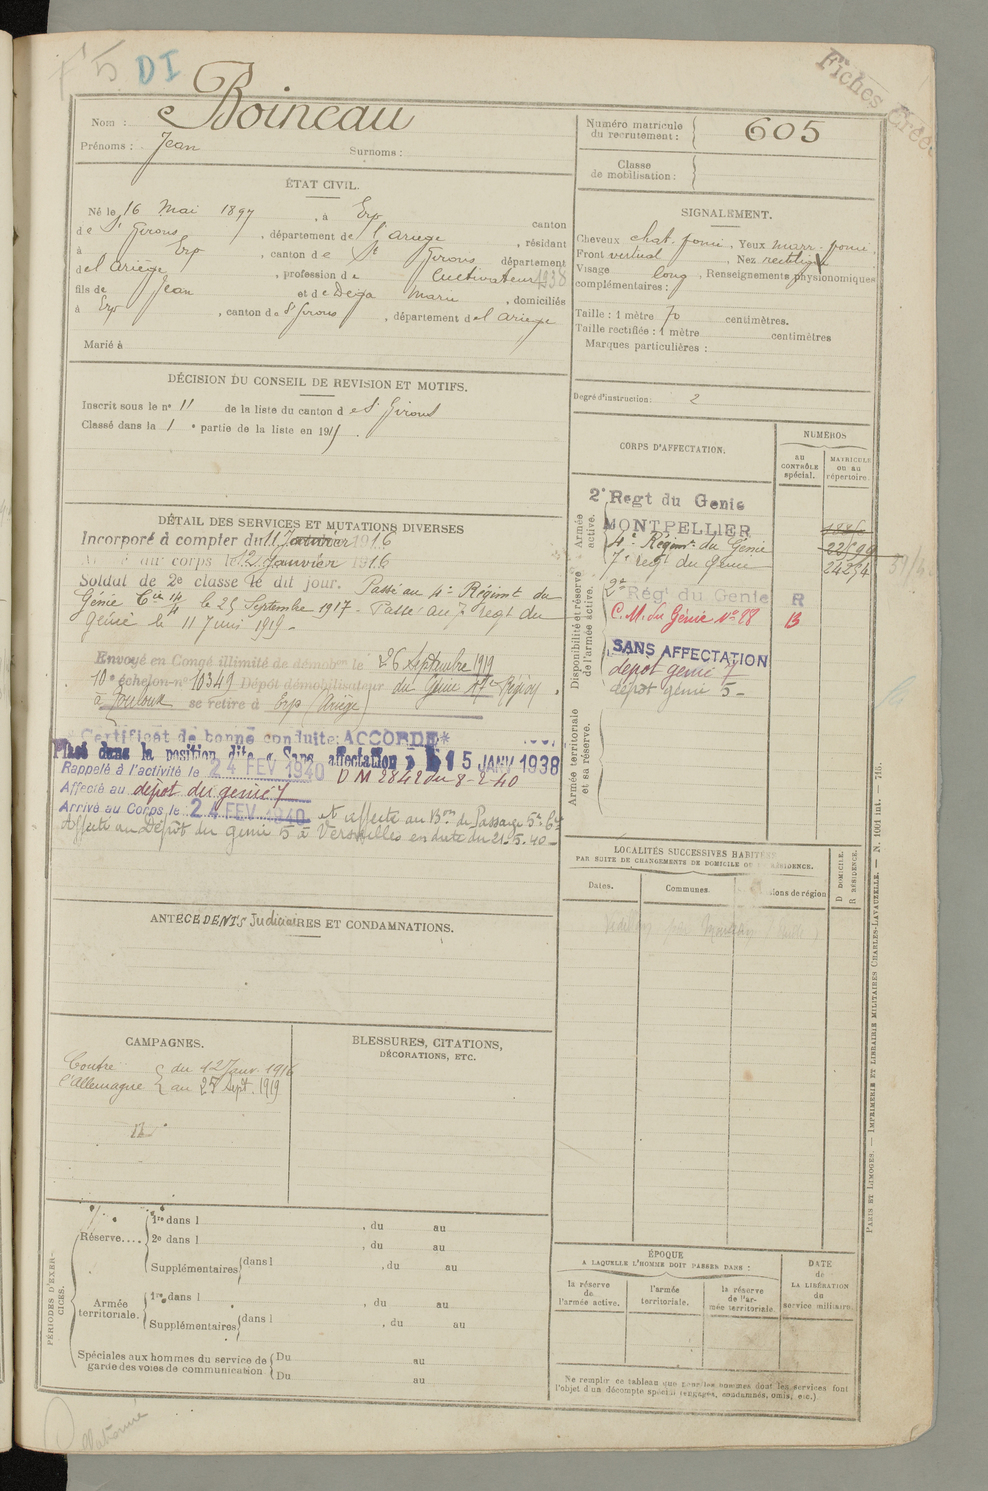 F 5 DI
Fiches Créées
Nom : Boineau
Prénoms : Jean Surnoms :
Numéro matricule du recrutement : 605
Classe de mobilisation :
ÉTAT CIVIL.
Né le 16 Mai 1897, à Erp canton
de St Girons, département de l'Ariège, résidant
à Erp, canton de St Girons, département
de l'Ariège, profession de Cultivateur 1938
fils de Jean et de Dega Marie, domiciliés
à Erp, canton de St Girons, département de l'Ariège
Marié à
SIGNALEMENT.
Cheveux chat. foncé, Yeux marr. foncé,
Front vertical, Nez rectiligne
Visage long, Renseignements physionomiques
complémentaires :
Taille : 1 mètre 70 centimètres.
Taille rectifiée : 1 mètre centimètres
Marques particulières :
Degré d'instruction : 2
DÉCISION DU CONSEIL DE REVISION ET MOTIFS.
Inscrit sous le no 11 de la liste du canton de St Girons
Classé dans la 1e partie de la liste en 191
DÉTAIL DES SERVICES ET MUTATIONS DIVERSES
Incorporé à compter du 11 Janvier 1916
au corps le 12 Janvier 1916
Soldat de 2e classe le dit jour. Passé au 4e Régimt du
Génie Cie 14/4 le 25 Septembre 1917 - Passé au 7e regt du
génie le 11 Juin 1919 -
Envoyé en Congé illimité de démobon le 26 Septembre 1919
10e échelon no 10349 Dépôt démobilisateur du Génie 17e Région,
à Toulouse se retire à Erp (Ariège)
Certificat de bonne conduite: ACCORDÉ*
Placé dans la position dite « Sans affectation » le 15 JANV 1938
Rappelé à l'activité le 24 FEV 1940 D M 2842 du 8-2-40
Affecté au dépôt du génie 7
Arrivé au Corps le 24 FEV 1940 et affecté au Bon de Passage 5e Cie
Affecté au Dépôt du génie 5 à Versailles en date du 21-5-40 -
CORPS D'AFFECTATION.
NUMÉROS
AU CONTRÔLE spécial.
MATRICULE ou au répertoire.
Armée active.
2e Regt du Genie
MONTPELLIER
4e Régimt du Génie
7e regt du génie 24254
Disponibilité et réserve de l'armée active.
2e Régt du Genie R
C. M. du Génie No 88 B
SANS AFFECTATION
dépôt génie 7
dépôt génie 5 -
Armée territoriale et sa réserve.
LOCALITÉS SUCCESSIVES HABITÉES
PAR SUITE DE CHANGEMENTS DE DOMICILE OU DE RÉSIDENCE.
Dates.
Communes.
ions de région
D DOMICILE.
R RÉSIDENCE.
ANTÉCÉDENTS Judiciaires ET CONDAMNATIONS.
CAMPAGNES.
Contre l'Allemagne
du 12 Janv. 1916
au 27 Sept. 1919
BLESSURES, CITATIONS,
DÉCORATIONS, ETC.
PÉRIODES D'EXERCICES.
Réserve....
1re dans l , du au
2e dans l , du au
Supplémentaires dans l , du au
Armée territoriale.
1re dans l , du au
Supplémentaires dans l , du au
Spéciales aux hommes du service de garde des voies de communication
Du au
Du au
ÉPOQUE
A LAQUELLE L'HOMME DOIT PASSER DANS :
la réserve de l'armée active.
l'armée territoriale.
la réserve de l'armée territoriale.
DATE de LA LIBÉRATION du service militaire.
Ne remplir ce tableau que pour les hommes dont les services font
l'objet d'un décompte spécial (engagés, condamnés, omis, etc.).
PARIS ET LIMOGES. — IMPRIMERIE ET LIBRAIRIE MILITAIRES CHARLES-LAVAUZELLE. — N. 1001 int. — 715.